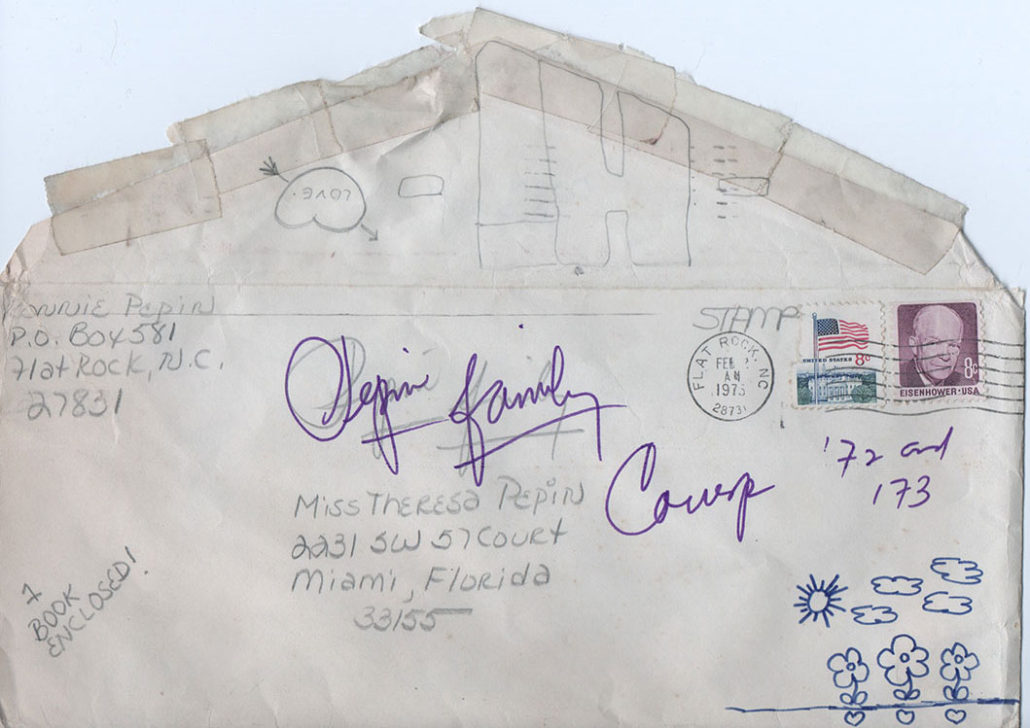 LOVE.
STAMP
Pepin
P.O. Box 581
Flat Rock, N.C.
27831
FLAT ROCK, NC
FEB
AM
1973
28731
UNITED STATES 8c
8c
EISENHOWER·USA
Pepin family
Corresp
'72 and
'73
Miss Theresa Pepin
2231 SW 57 Court
Miami, Florida
33155
BOOK
ENCLOSED!